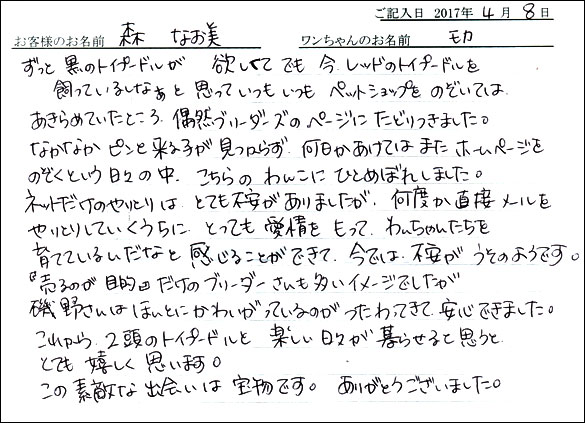 ご記入日 2017年 4月 8日
お客様のお名前 森 なお美 ワンちゃんのお名前 モカ
ずっと 黒のトイプードルが 欲しくて でも 今、レッドのトイプードルを
飼っているしなぁと 思って いつも いつも ペットショップを のぞいては、
あきらめていたところ、偶然ブリーダーズのページに たどりつきました。
なかなか ピンと来る子が 見つからず、何日かあけては また ホームページを
のぞくという 日々の 中、こちらの わんこに ひとめぼれしました。
ネットだけのやりとりは、とても不安がありましたが、何度か 直接メールを
やりとりしていくうちに、とっても 愛情を もって、わんちゃんたちを
育てているんだなと 感じることができて、今では 不安が うそのようです。
『売るのが 目的』だけの ブリーダーさんも多いイメージでしたが
磯野さんは ほんとにかわいがっているのが つたわってきて、安心できました。
これから、2頭のトイプードルと 楽しい 日々が 暮らせると思うと
とても 嬉しく 思います。
この 素敵な 出会いは 宝物です。 ありがとうございました。